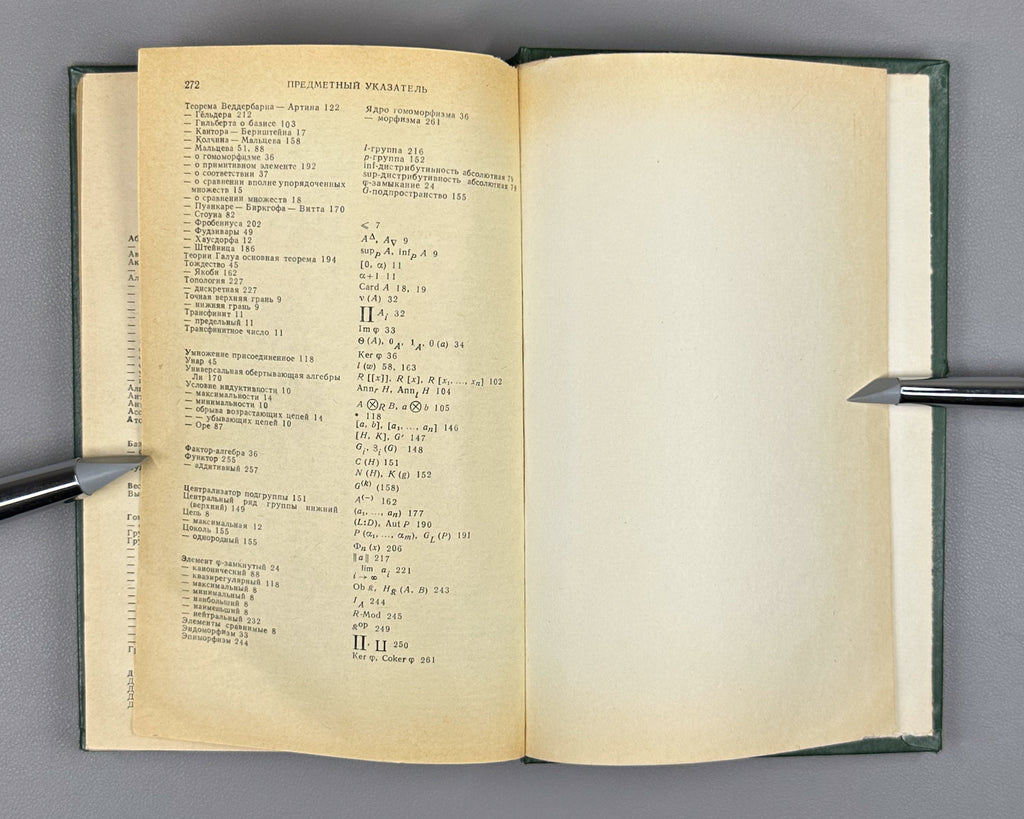 272
ПРЕДМЕТНЫЙ УКАЗАТЕЛЬ
Теорема Веддербарна — Артина 122
— Гёльдера 212
— Гильберта о базисе 103
— Кантора — Бернштейна 17
— Колчина — Мальцева 158
— Мальцева 51, 88
— о гомоморфизме 36
— о примитивном элементе 192
— о соответствии 37
— о сравнении вполне упорядоченных
множеств 15
— о сравнении множеств 18
— Пуанкаре — Биркгофа — Витта 170
— Стоуна 82
— Фробениуса 202
— Фудзивары 49
— Хаусдорфа 12
— Штейница 186
Теории Галуа основная теорема 194
Тождество 45
— Якоби 162
Топология 227
— дискретная 227
Точная верхняя грань 9
— нижняя грань 9
Трансфинит 11
— предельный 11
Трансфинитное число 11
Умножение присоединенное 118
Унар 45
Универсальная обертывающая алгебры
Ли 170
Условие индуктивности 10
— максимальности 14
— минимальности 10
— обрыва возрастающих цепей 14
— — убывающих цепей 10
— Оре 87
Фактор-алгебра 36
Функтор 255
— аддитивный 257
Централизатор подгруппы 151
Центральный ряд группы нижний
(верхний) 149
Цепь 8
— максимальная 12
Цоколь 155
— однородный 155
Элемент φ-замкнутый 24
— канонический 88
— квазирегулярный 118
— максимальный 8
— минимальный 8
— наибольший 8
— наименьший 8
— нейтральный 232
Элементы сравнимые 8
Эндоморфизм 33
Эпиморфизм 244
Ядро гомоморфизма 36
— морфизма 261
l-группа 216
p-группа 152
inf-дистрибутивность абсолютная 79
sup-дистрибутивность абсолютная 79
φ-замыкание 24
G-подпространство 155
⩽ 7
A^Δ, A_∇ 9
sup_P A, inf_P A 9
[0, α) 11
α+1 11
Card A 18, 19
ν (A) 32
∏ A_i 32
Im φ 33
Θ (A), 0_A, 1_A, θ (a) 34
Ker φ 36
l (w) 58, 163
R [[x]], R [x], R [x₁, ..., x_n] 102
Ann_r H, Ann_l H 104
A ⊗_R B, a ⊗ b 105
* 118
[a, b], [a₁, ..., a_n] 146
[H, K], G′ 147
G_i, 𝔷_i (G) 148
C (H) 151
N (H), K (g) 152
G^(k) (158)
A^(−) 162
(a₁, ..., a_n) 177
(L:D), Aut P 190
P (α₁, ..., α_m), G_L (P) 191
Φ_n (x) 206
‖a‖ 217
lim a_i 221
i → ∞
Ob 𝔎, H_𝔎 (A, B) 243
I_A 244
R-Mod 245
𝔎^op 249
∏, ∐ 250
Ker φ, Coker φ 261